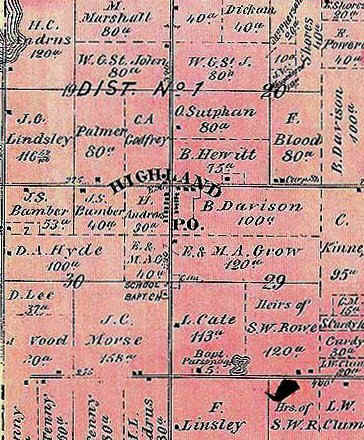 M.
Marshall
80a
40a
Dickam
40a
Shores
40a
20a
H.C.
120a
W.G.St. John
80a
W.G.S. J.
80a
100
E.
Powers
40a
19
DIST. No 1
20
J.G.
Lindsley
116
Palmer
80a
C.A
Godfrey
O. Sutphan
80a
B. Hewitt
75a
F.
Blood
80a
B. Davison
120a
HIGHLAND
P.O.
J.S.
Bamber
53a
J.S.
Bamber
40a
H.
Andrus
30a
B. Davison
100a
D.A. Hyde
100a
E. &
M.A.G
40a
E. & M.A. Grow
120a
C.
Kinne
95a
30
29
D. Lee
37a
SCHOOL
BAPT. CH
J.C.
Morse
158a
L. Cate
113a
Bapt.
Parsonage
5
Heirs of
S.W. Rowe
120a
15a
Curdy
30a
80a
F.
Linsley
Hrs. of
S.W.R.
L.W.
Clum